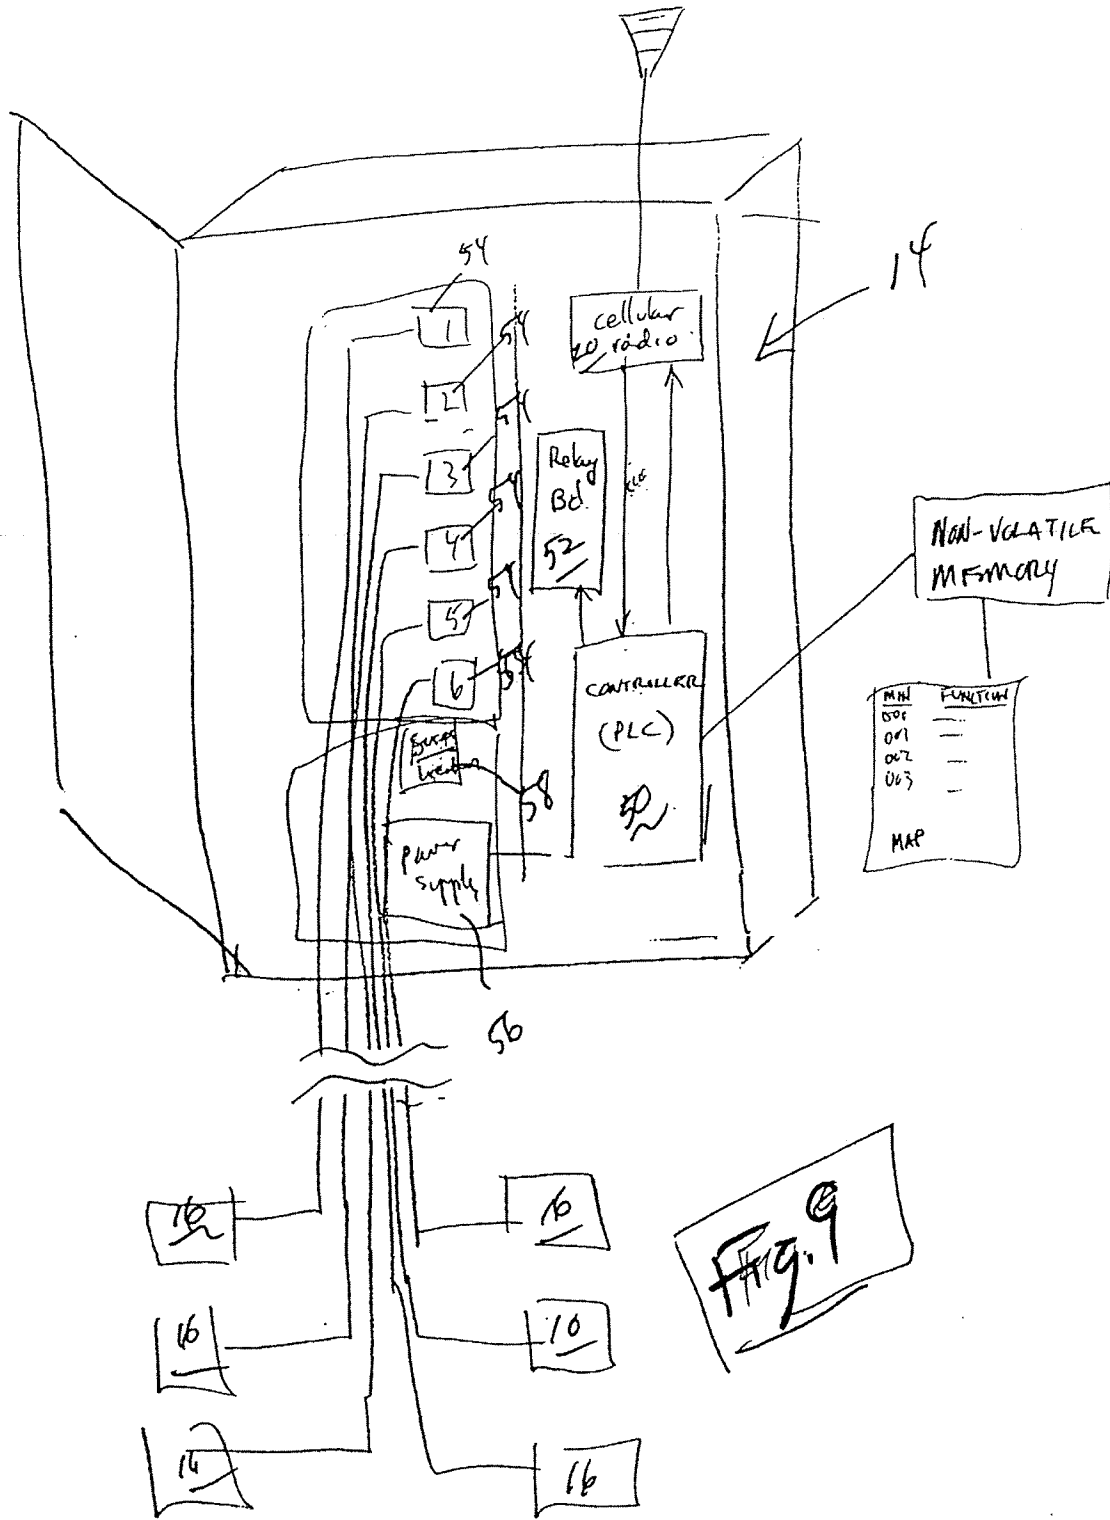 54
1
54
2
54
3
54
4
54
5
54
6
cellular
20 radio
14
Relay
Bd.
52
NON-VOLATILE
MEMORY
CONTROLLER
(PLC)
50
MIN FUNCTION
000
001
002
003
MAP
58
Power
Supply
56
16
16
16
10
16
16
Fig. 9